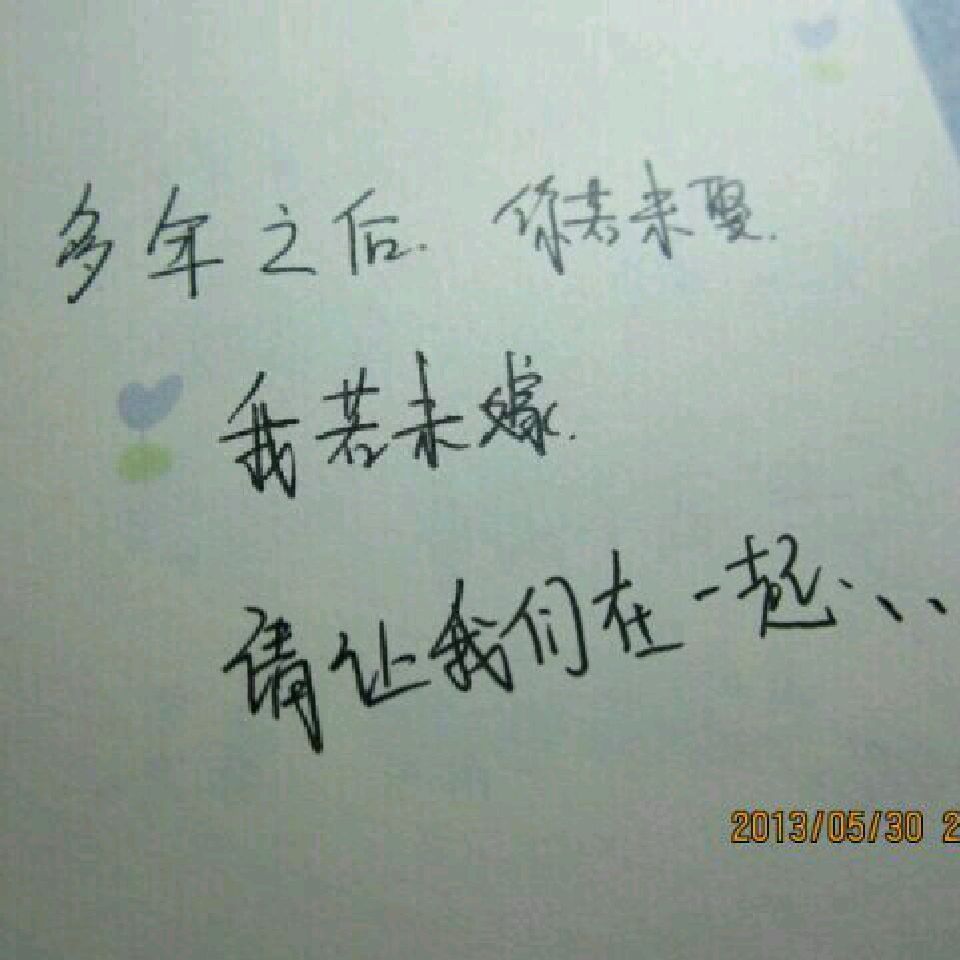 多年之后. 你若未娶.
我若未嫁.
请让我们在一起、、、
2013/05/30 2